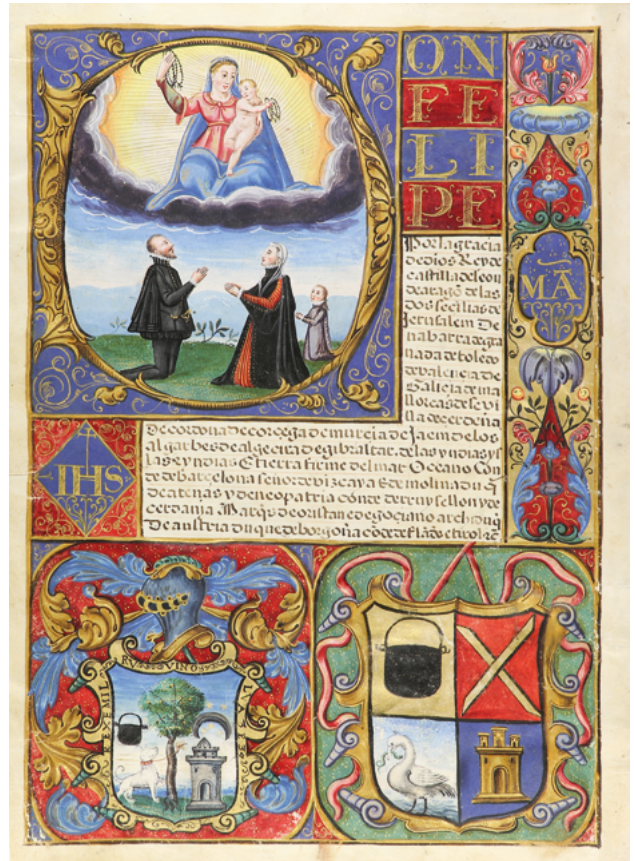 DON
FE
LI
PE
Por la gracia
de dios Rey de
castilla de leon
de aragō de las
dos seçilias de
Jerusalem De
nabarra de gra
nada de toledo
de valençia de
Galicia de ma
llorcas de sevi
lla de cerdeña
MĀ
IHS
De cordova de corcega de murcia de Jaem de los
algarbes de algecira de gibraltar. de las yndias ys
las E yndias E tierra firme del mar Oceano Con
de de barcelona señor de vizcaya E de molina du
de atenas y de neopatria cōnde de y de
cerdania Marq̄s de oristan e de gociano archiduq̄
De austria duque de borgoña cōde de flādes e tirol
VINO
LA